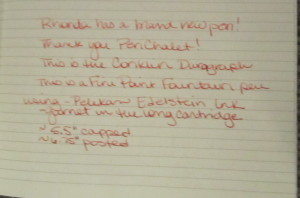 Rhonda has a brand new pen!
Thank you Pen Chalet!
This is the Conklin Duragraph
This is a Fine Point Fountain pen
using - Pelikan Edelstein Ink
- garnet in the long cartridge
~ 5.5" capped
~ 6.75" posted